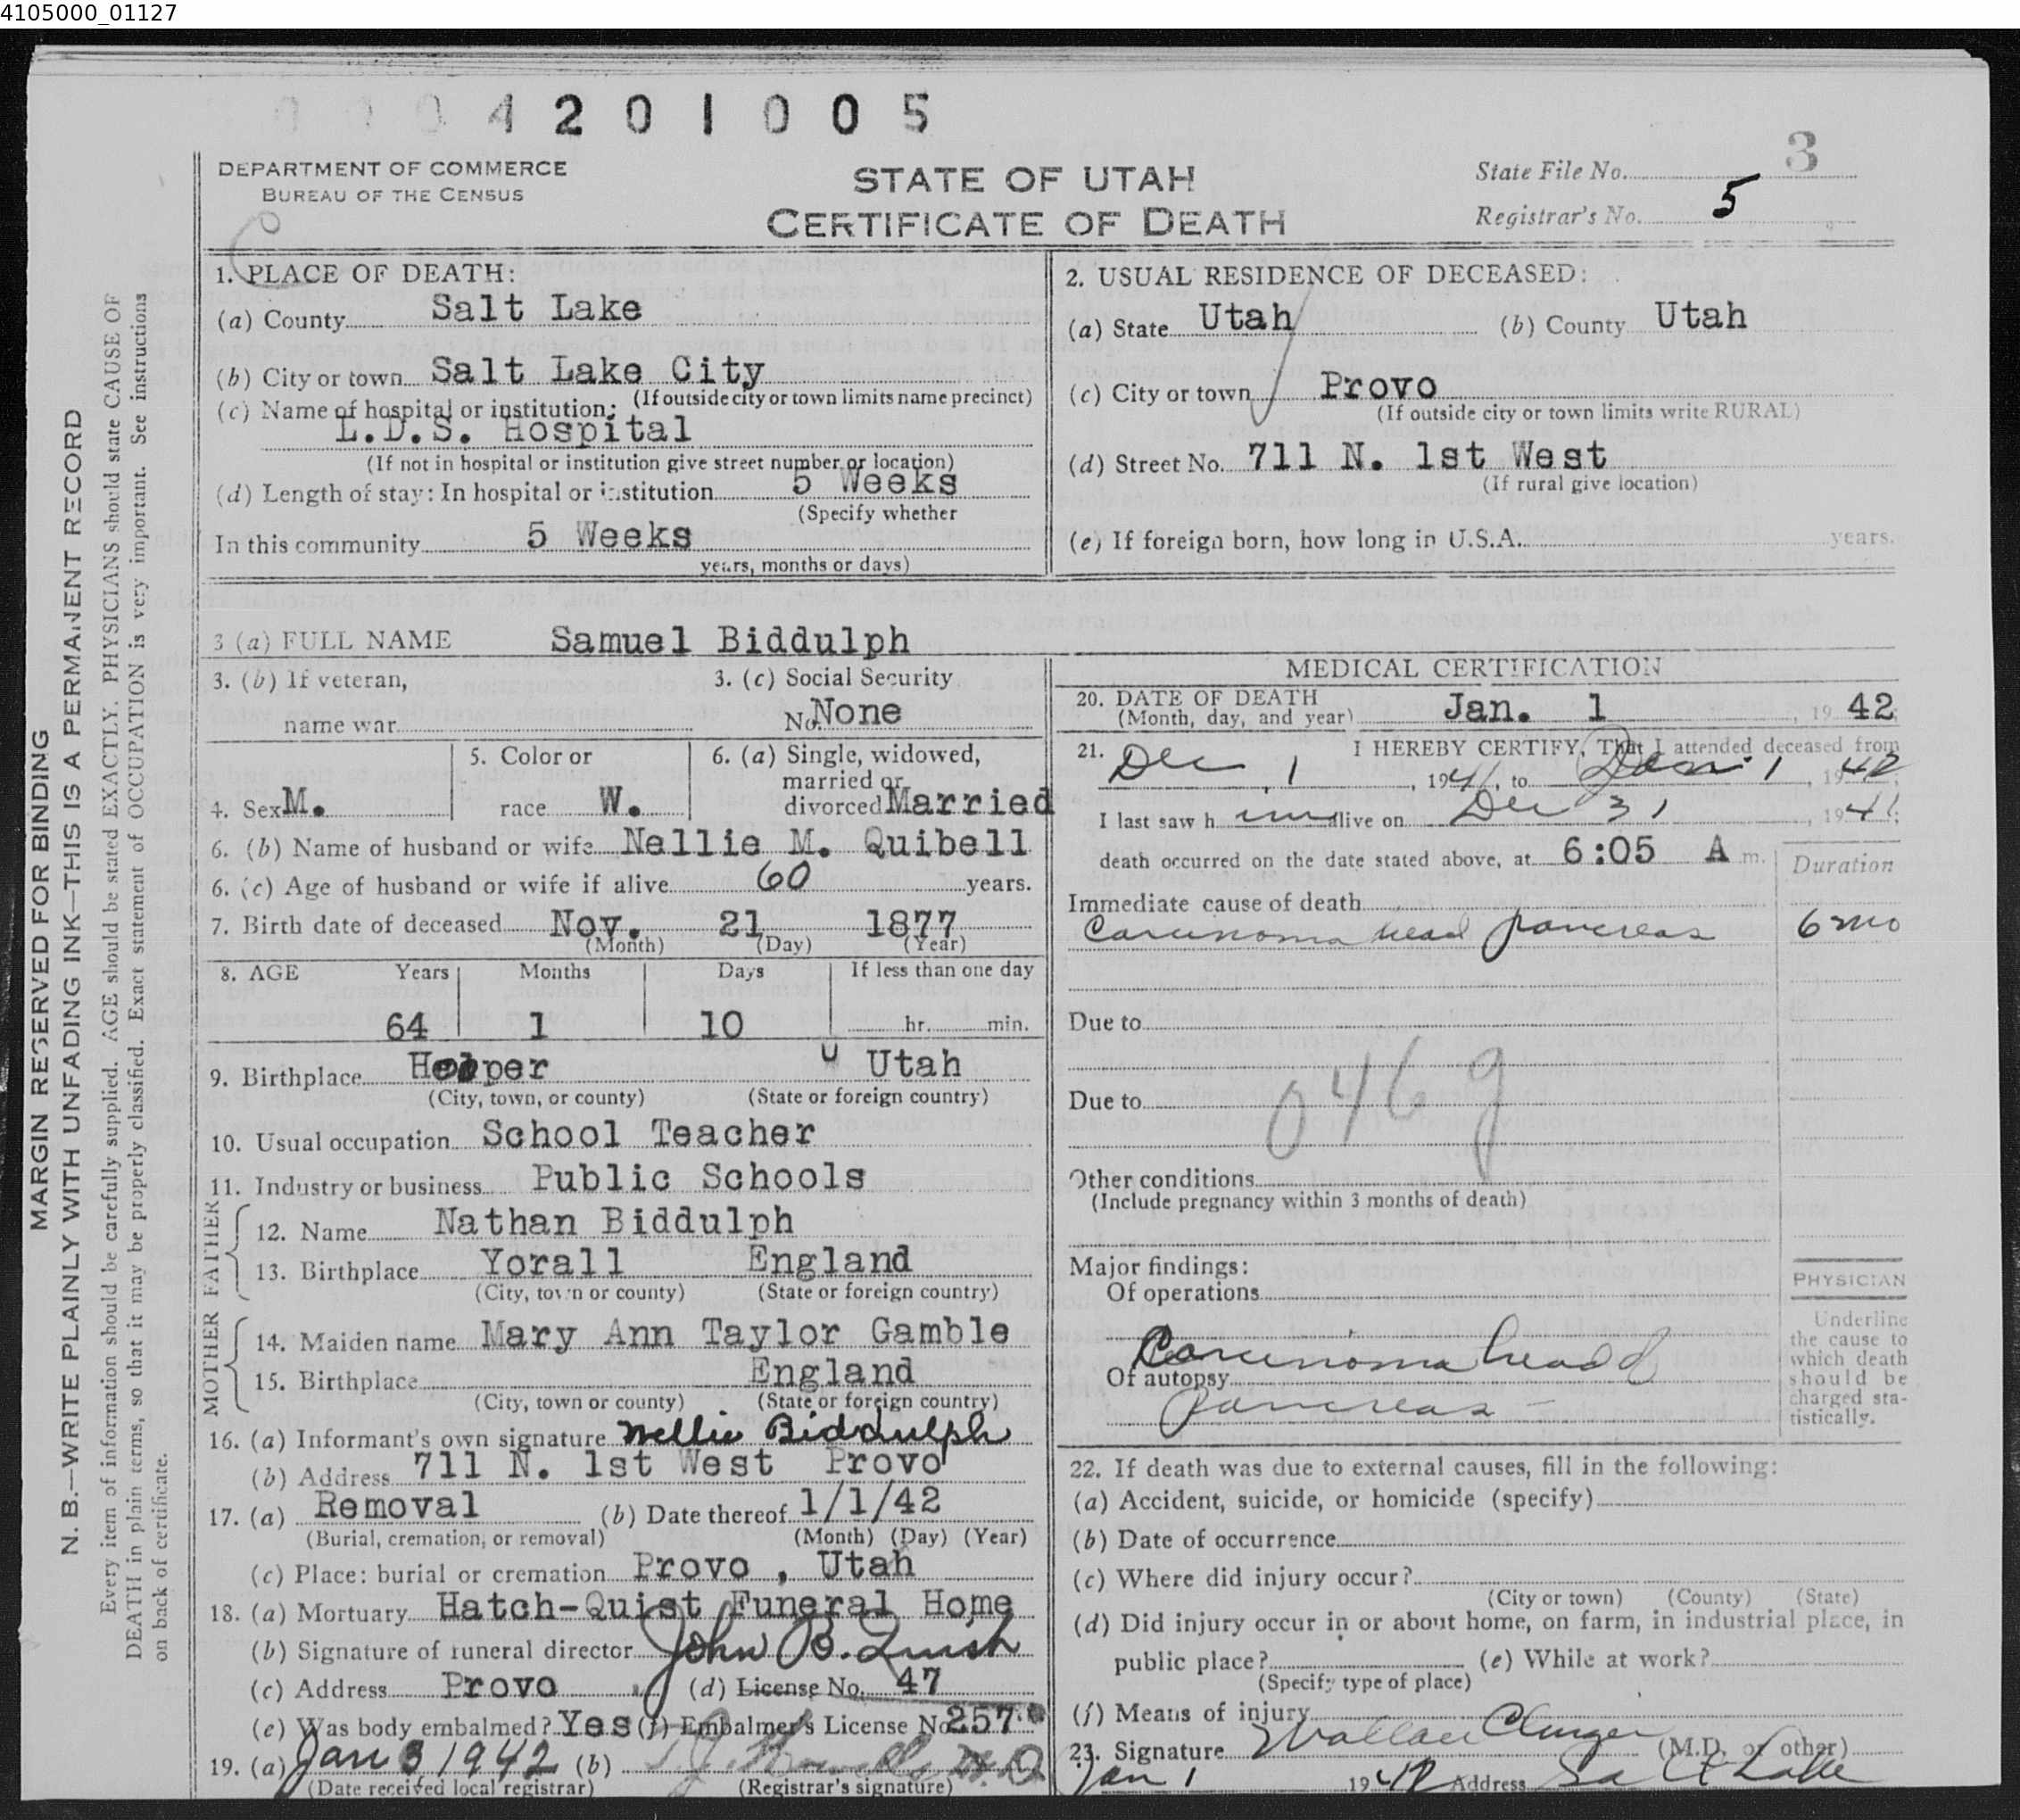 4105000_01127
4 2 0 1 0 0 5
DEPARTMENT OF COMMERCE
BUREAU OF THE CENSUS
STATE OF UTAH
CERTIFICATE OF DEATH
State File No. 3
Registrar's No. 5
MARGIN RESERVED FOR BINDING
N. B.—WRITE PLAINLY WITH UNFADING INK—THIS IS A PERMANENT RECORD
Every item of information should be carefully supplied. AGE should be stated EXACTLY. PHYSICIANS should state CAUSE OF
DEATH in plain terms, so that it may be properly classified. Exact statement of OCCUPATION is very important. See instructions
on back of certificate.
1. PLACE OF DEATH:
(a) County Salt Lake
(b) City or town Salt Lake City
(If outside city or town limits name precinct)
(c) Name of hospital or institution:
L.D.S. Hospital
(If not in hospital or institution give street number or location)
(d) Length of stay: In hospital or institution 5 Weeks
(Specify whether
In this community 5 Weeks
years, months or days)
2. USUAL RESIDENCE OF DECEASED:
(a) State Utah (b) County Utah
(c) City or town Provo
(If outside city or town limits write RURAL)
(d) Street No. 711 N. 1st West
(If rural give location)
(e) If foreign born, how long in U.S.A. years.
3 (a) FULL NAME Samuel Biddulph
3. (b) If veteran, 3. (c) Social Security
name war No. None
4. Sex M.
5. Color or
race W.
6. (a) Single, widowed,
married or
divorced Married
6. (b) Name of husband or wife Nellie M. Quibell
6. (c) Age of husband or wife if alive 60 years.
7. Birth date of deceased Nov. 21 1877
(Month) (Day) (Year)
8. AGE Years Months Days If less than one day
64 1 10 hr. min.
9. Birthplace Hooper Utah
(City, town, or county) (State or foreign country)
10. Usual occupation School Teacher
11. Industry or business Public Schools
FATHER
12. Name Nathan Biddulph
13. Birthplace Yorall England
(City, town or county) (State or foreign country)
MOTHER
14. Maiden name Mary Ann Taylor Gamble
15. Birthplace England
(City, town or county) (State or foreign country)
16. (a) Informant's own signature Nellie Biddulph
(b) Address 711 N. 1st West Provo
17. (a) Removal (b) Date thereof 1/1/42
(Burial, cremation, or removal) (Month) (Day) (Year)
(c) Place: burial or cremation Provo , Utah
18. (a) Mortuary Hatch-Quist Funeral Home
(b) Signature of funeral director John B.
(c) Address Provo (d) License No. 47
(e) Was body embalmed? Yes (f) Embalmer's License No. 257
19. (a) Jan 3 1942 (b) M.D.
(Date received local registrar) (Registrar's signature)
MEDICAL CERTIFICATION
20. DATE OF DEATH
(Month, day, and year) Jan. 1, 19 42
21. I HEREBY CERTIFY, That I attended deceased from
Dec 1, 1941, to Jan. 1, 1942
I last saw him alive on Dec 31, 1941;
death occurred on the date stated above, at 6:05 A m.
Duration
Immediate cause of death
Carcinoma head pancreas 6 mo
Due to
Due to
046 g
Other conditions
(Include pregnancy within 3 months of death)
Major findings:
Of operations
Carcinoma head of
Of autopsy
Pancreas
PHYSICIAN
Underline
the cause to
which death
should be
charged sta-
tistically.
22. If death was due to external causes, fill in the following:
(a) Accident, suicide, or homicide (specify)
(b) Date of occurrence
(c) Where did injury occur?
(City or town) (County) (State)
(d) Did injury occur in or about home, on farm, in industrial place, in
public place? (e) While at work?
(Specify type of place)
(f) Means of injury
23. Signature Wallace (M.D. or other)
Jan 1 1942 Address Salt Lake